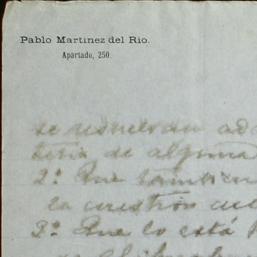 Pablo Martinez del Rio.
Apartado, 250.
se resuelvan
de alguna
2ª Que tambien
la cuestión
3ª Que lo está